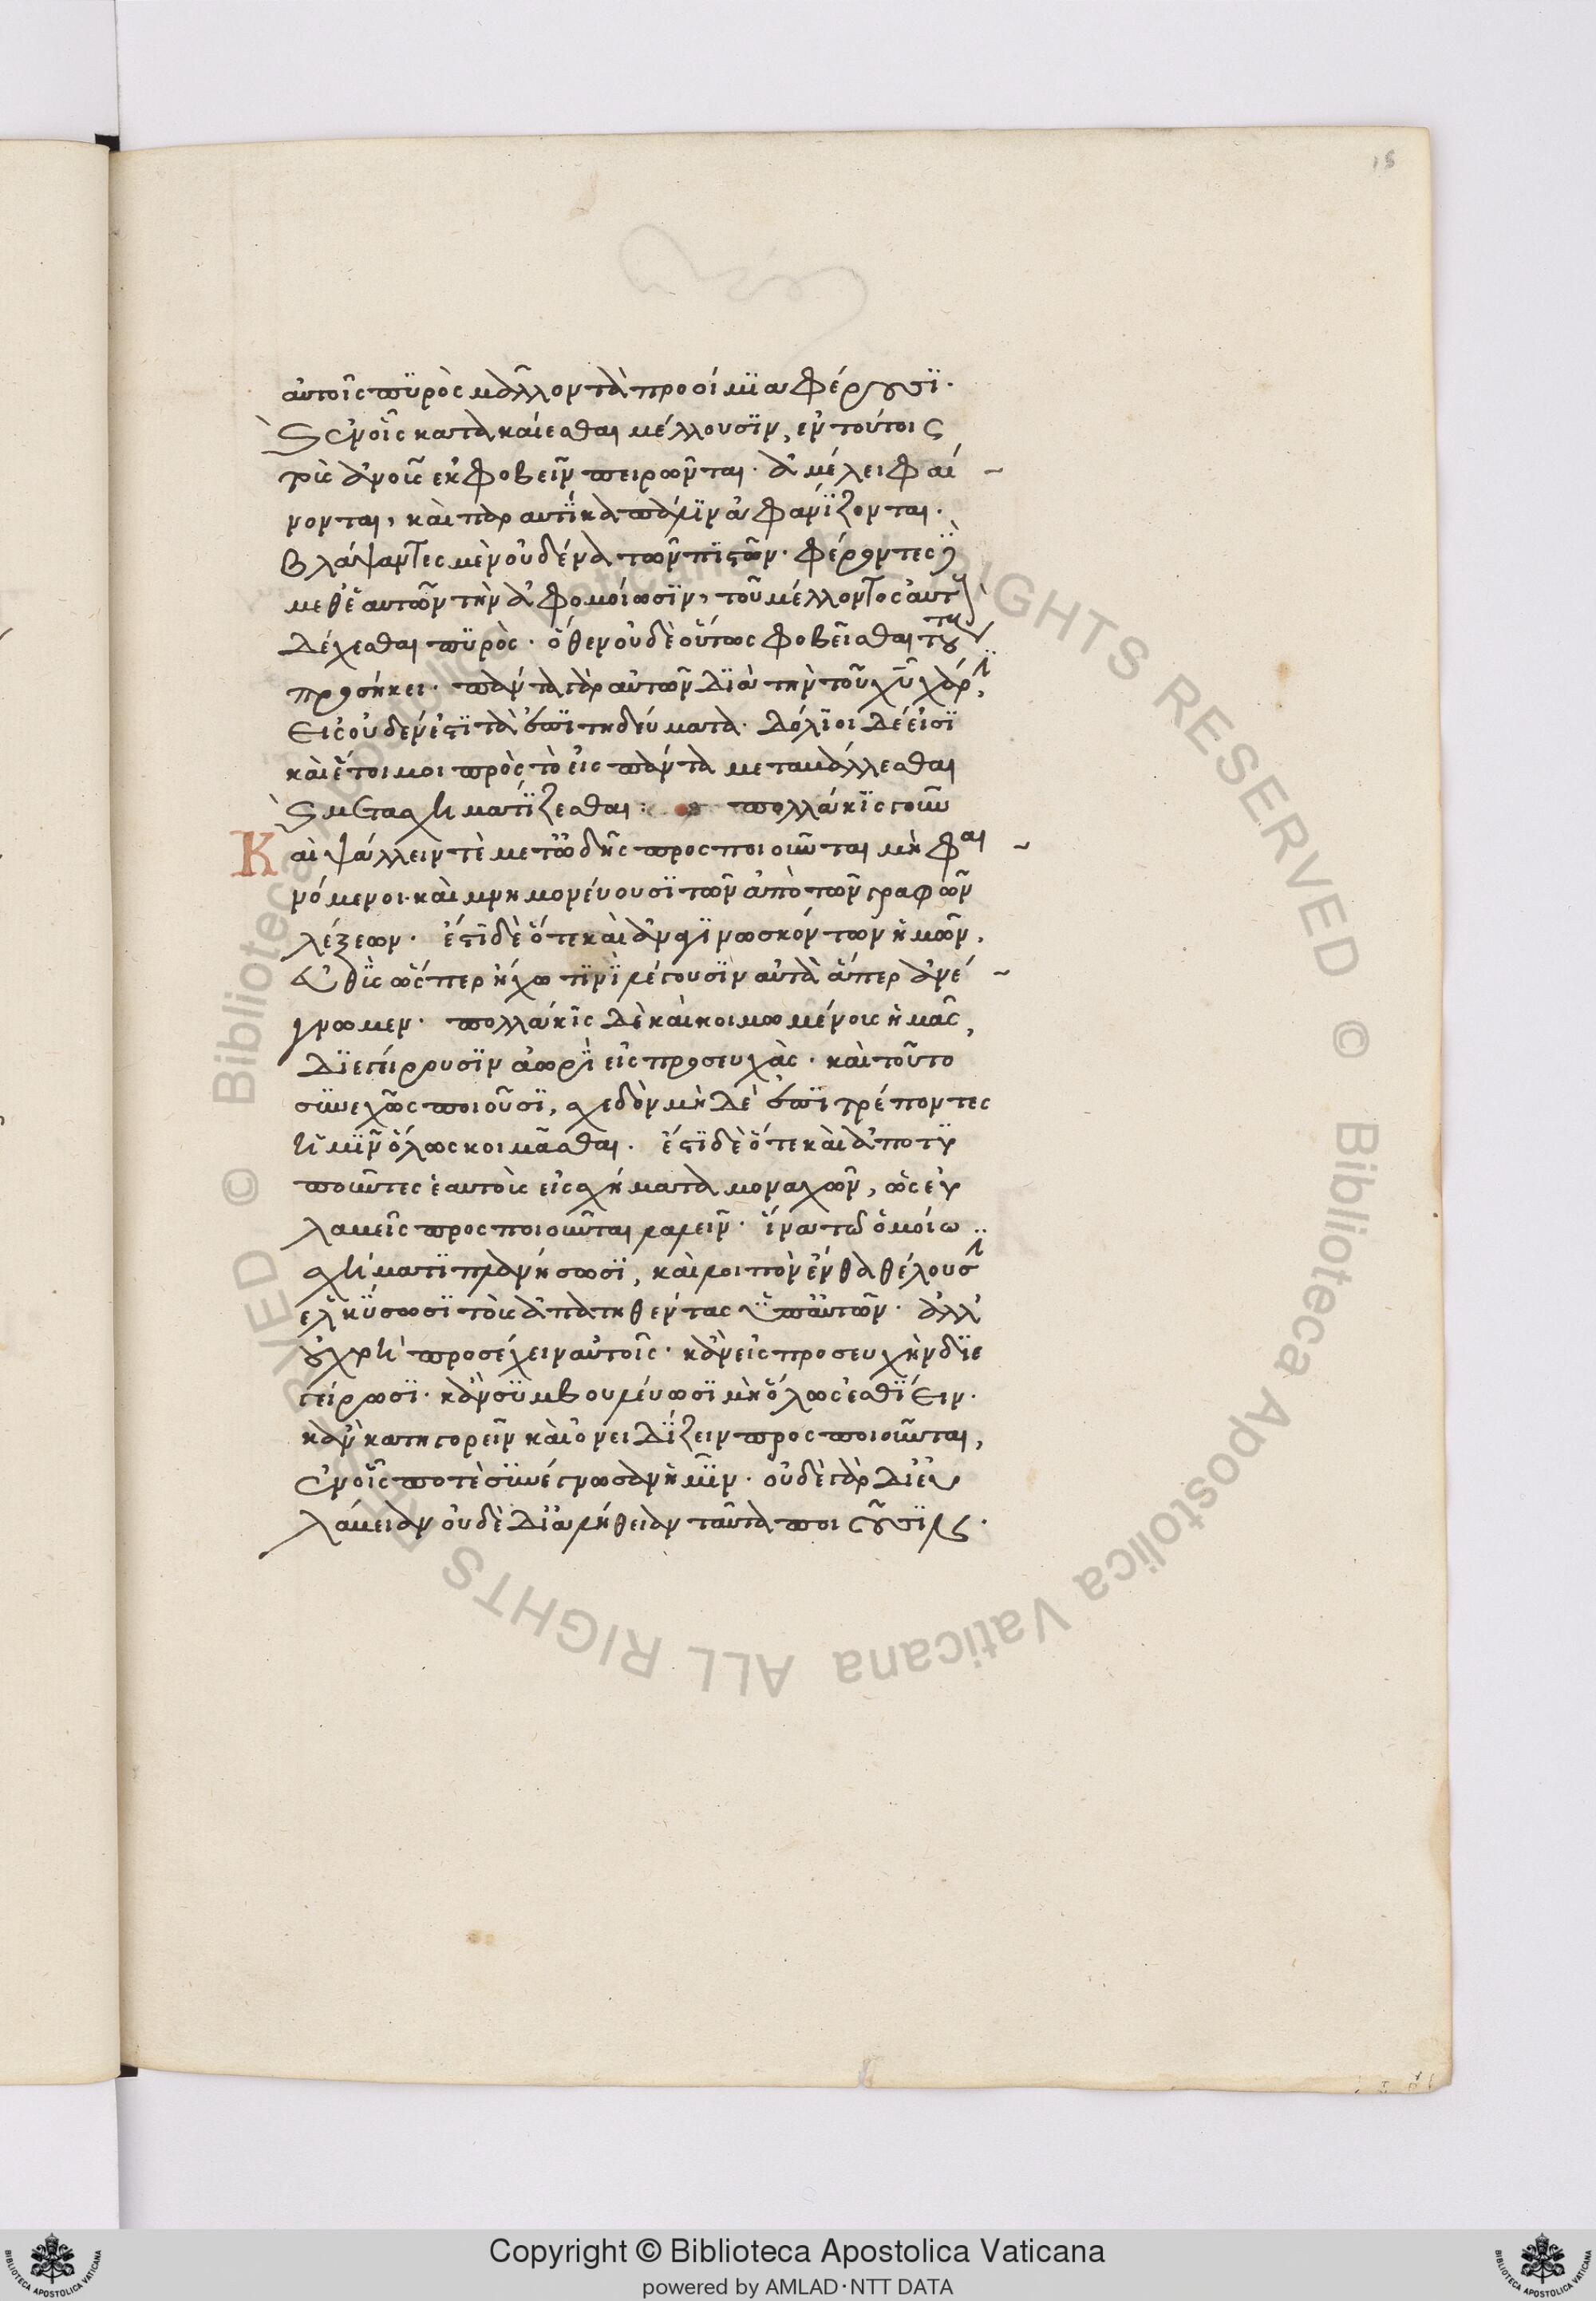 15
αὐτοῖς πυρὸς μᾶλλον τὰ προοίμια φέρουσι.
καὶ ἐν οἷς κατακαίεσθαι μέλλουσιν, ἐν τούτοις
τοὺς ἀνους ἐκφοβεῖν πειρῶνται. ἀμέλει φαί
νονται, καὶ παραυτίκα πάλιν ἀφανίζονται.
βλάψαντες μὲν οὐδένα τῶν πιστῶν. φέροντες δὲ
μεθ' ἑαυτῶν τὴν ἀφομοίωσιν, τοῦ μέλλοντος αὐτοὺς
δέχεσθαι πυρὸς. ὅθεν οὐδὲ οὕτως φοβεῖσθαι τούτους
προσήκει. πάντα γὰρ αὐτῶν διὰ τὴν τοῦ χυ χάριν,
εἰς οὐδέν ἐστι τὰ ἐπιτηδεύματα. δόλιοι δέ εἰσι
καὶ ἕτοιμοι πρὸς τὸ εἰς πάντα μεταβάλλεσθαι
καὶ μετασχηματίζεσθαι: πολλάκις γοῦν
Καὶ ψάλλειν τὲ μετ' ὠδῆς προσποιοῦνται μὴ φαι
νόμενοι. καὶ μνημονεύουσι τῶν ἀπὸ τῶν γραφῶν
λέξεων. ἔστι δὲ ὅτε καὶ ἀναγινωσκόντων ἡμῶν,
εὐθὺς ὥσπερ ἠχὼ τινὶ λέγουσιν αὐτὰ ἅπερ ἀνέ
γνωμεν. πολλάκις δὲ καὶ κοιμωμένους ἡμᾶς,
διεγείρουσιν ἀωρὶ εἰς προσευχὰς. καὶ τοῦτο
συνεχῶς ποιοῦσι, σχεδὸν μὴ δὲ ἐπιτρέποντες
ἡμῖν ὅλως κοιμᾶσθαι. ἔστι δὲ ὅτε καὶ ἀποτυ
ποῦντες ἑαυτοὺς εἰς σχήματα μοναχῶν, ὡς εὐ
λαβεῖς προσποιοῦνται λαλεῖν. ἵνα τῶ ὁμοίω
σχήματι πλανήσωσι, καὶ λοιπὸν ἔνθα θέλουσιν
ἑλκύσωσι τοὺς ἀπατηθέντας ὑπ' αὐτῶν. ἀλλ'
οὐ χρὴ προσέχειν αὐτοῖς. κἂν εἰς προσευχὴν διε
γείρωσι. κἂν συμβουλεύωσι μὴ ὅλως ἐσθίειν.
κἂν κατηγορεῖν καὶ ὀνειδίζειν προσποιοῦνται,
ἐν οἷς ποτὲ συνέγνωσαν ἡμῖν. οὐδὲ γὰρ δι' εὐ
λάβειαν οὐδὲ δι' ἀλήθειαν ταῦτα ποιοῦσιν.
Copyright © Biblioteca Apostolica Vaticana
powered by AMLAD·NTT DATA